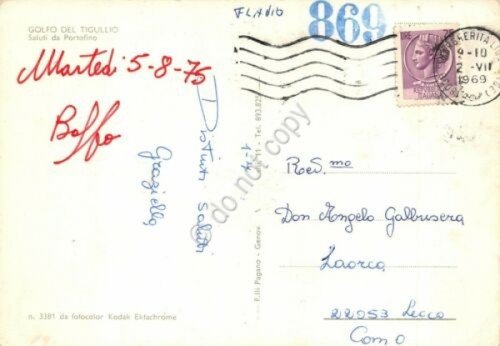 GOLFO DEL TIGULLIO
Saluti da Portofino
FLAVIO
869
MARGHERITA
9-10
VII
1969
Martedì 5-8-75
Baffo
Distinti saluti
Graziella
do not copy
Rev.mo
Don Angelo Galbusera
Laorca
22053 Lecco
Como
F.lli Pagano - Genova
Tel. 893.82
n. 3381 da fotocolor Kodak Ektachrome